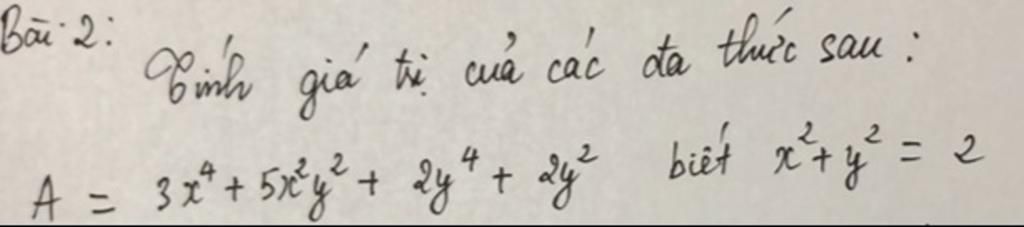 Bài 2:
Tính giá trị của các đa thức sau:
A = 3x⁴ + 5x²y² + 2y⁴ + 2y² biết x² + y² = 2